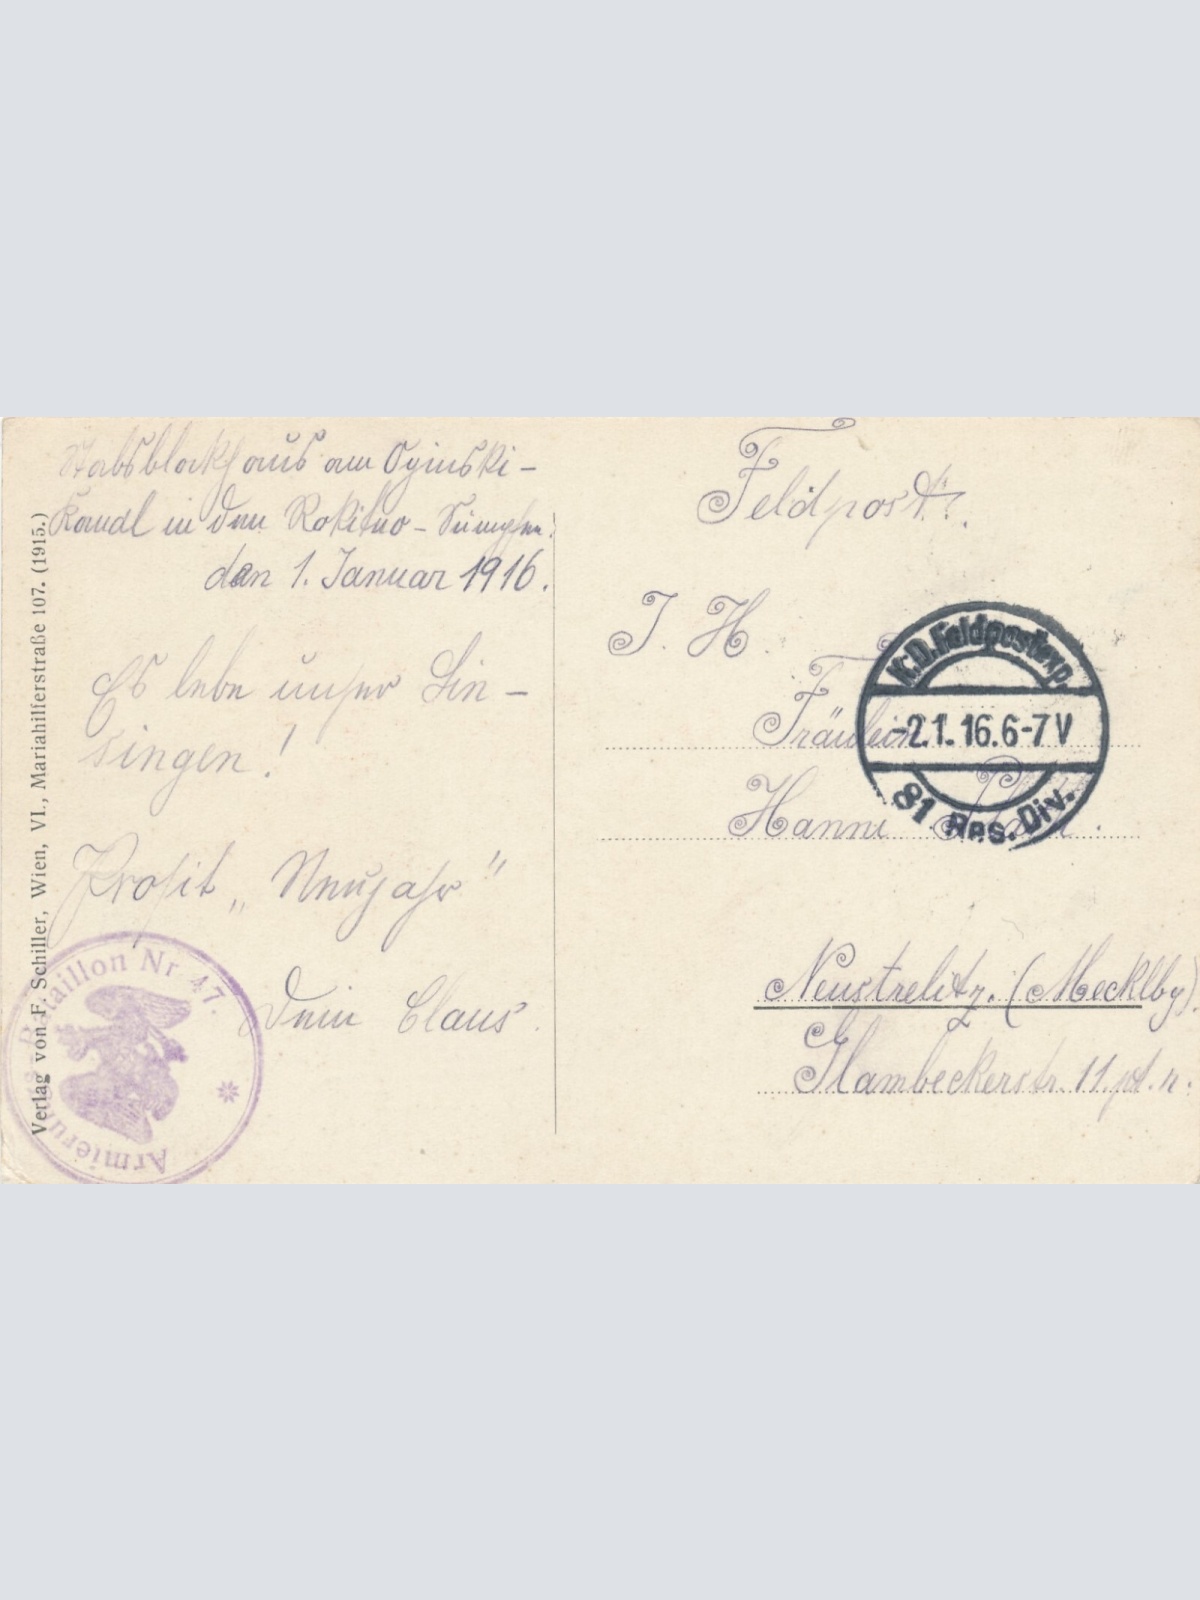 Stabsblockhaus am Oginski-
Kanal in den Rokitno-Sümpfen.
den 1. Januar 1916.
Es lebe unser Lin-
singen!
Prosit „Neujahr"
Dein Claus.
Armierungs-Bataillon Nr. 47.
Verlag von F. Schiller, Wien, VI., Mariahilferstraße 107. (1915.)
Feldpost!
I. H.
Fräulein
Hanni
Neustrelitz. (Mecklbg)
Glambeckerstr. 11. pt. r.
K.D.Feldpostexp.
-2.1.16.6-7V
81 Res. Div.